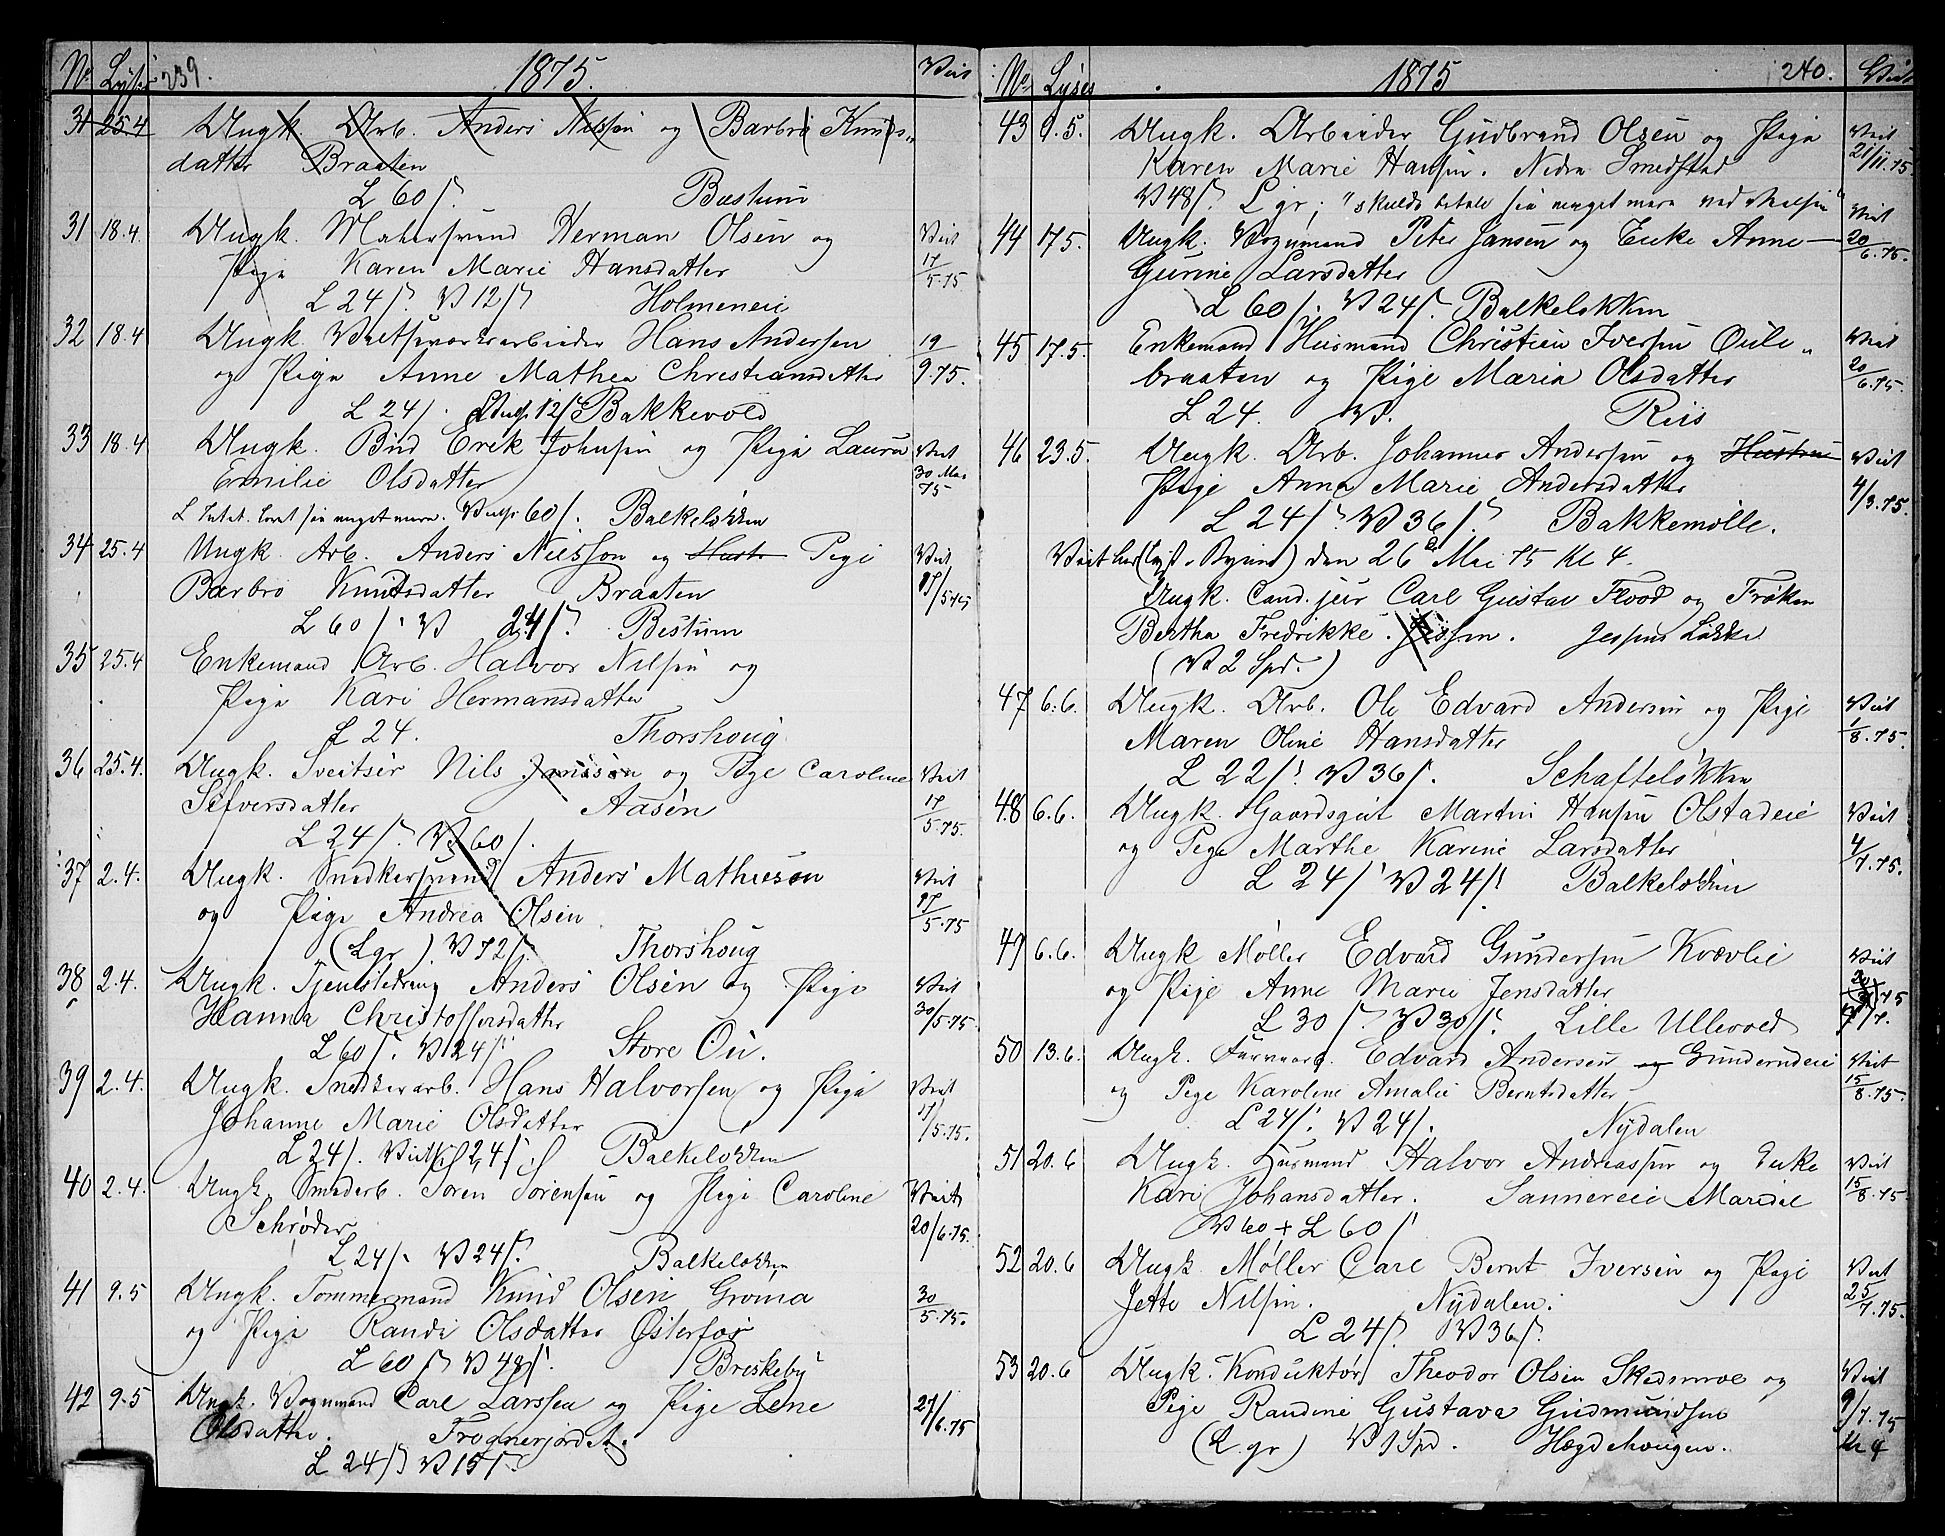 No Lyses 239. 1875. Viet
31 25.4 Ungk. Arb. Anders Nilssen og Barbro Knuds-
datter Braaten
L 60 s. Bestum
31 18.4 Ungk. Malersvend Herman Olsen og Viet
Pige Karen Marie Hansdatter 17/5.75
L 24 s. V 12 s Holmeneie
32 18.4 Ungk. Hans Andersen 19
og Pige Anne Mathea Christiansdatter 9.75.
L 24 s. 12 s Bakkevold
33 18.4 Ungk. Erik Johnsen og Pige Laura Viet
Emilie Olsdatter 30 Mai 75
L 60 s. Balkeløkken
34 25.4 Ungk. Arb. Anders Nilsson og Pige Viet
Barbro Knutsdatter Braaten 17/5 75
L 60 s. V 24 s. Bestum
35 25.4 Enkemand Arb. Halvor Nilsen og
Pige Kari Hermansdatter
L 24. Thorshoug
36 25.4. Ungk. Sveitser Nils Jonsson og Pige Caroline Viet
Silversdatter Aasen 17/5.75.
L 24 s. V 60 s.
37 2.4. Ungk. Snedkersvend Anders Mathiesen Viet
og Pige Andrea Olsen 17/5.75
(L gr). V 72 s. Thorshoug
38 2.4. Ungk. Tjenestedreng Anders Olsen og Pige Viet
Hanna Christoffersdatter 30/5.75
L 60 s. V 24 s. Store Ou.
39 2.4. Ungk. Snekkerarb. Hans Halvorsen og Pige Viet
Johanne Marie Olsdatter 17/5.75.
L 24 s. Viet 24 s. Balkeløkken
40 2.4. Ungk. Smedarb. Søren Sørensen og Pige Caroline Viet
Schrøder 20/6.75.
L 24 s. V 24 s. Balkeløkken
41 9.5 Ungk. Tømmermand Knud Olsen Groma 30
og Pige Randi Olsdatter Østerfos 5.75.
L 60 s V 48 s. Briskeby
42 9.5 Ungk. Vognmand Carl Larssen og Pige Lene 27/6.75
Olsdatter. Frognerjordet.
L 24 s V 15 s.
No Lyses 1875 240. Viet
43 9.5. Ungk. Arbeider Gudbrand Olsen og Pige Viet
Karen Marie Hansen. Nedre Smedstad 21/11.75.
V 48 s. L gr; "skulde betale
44 17.5. Ungk. Vognmand Peter Jansen og Enke Anne- Viet 20/6.75.
Gurine Larsdatter
L 60 s. V 24 s. Balkeløkken
45 17.5. Enkemand Husmand Christian Iversen Viet
braaten og Pige Maria Olsdatter 20/6.75.
L 24. V. Riis
46 23.5. Ungk. Arb. Johannes Andersen og Hustru Viet
Pige Anna Marie Andersdatter 4/3.75.
L 24 s. V 36 s. Bakkemølle.
Viet her (lyst i Byen) den 26de Mai 75 Kl 4.
Ungk. Cand. jur Carl Gustav Flood og Frøken
Bertha Fredrikke. Jessen. Jessens Løkke
(V 2 Spd.)
47 6.6. Ungk. Arb. Ole Edvard Andersen og Pige Viet
Maren Oline Hansdatter 1/8.75.
L 22 s. V 36 s. Schafteløkken
48 6.6. Ungk. Gaardsgut Martin Hansen Olstadeie Viet
og Pige Marthe Karine Larsdatter 4/7.75.
L 24 s. V 24 s. Balkeløkken
49 6.6. Ungk Møller Edvard Gundersen Kvævlie Viet
og Pige Anne Marie Jensdatter
L 30 s. V 30 s. Lille Ullevold
50 13.6. Ungk. Edvard Andersen og Gunderudeie Viet
og Pige Karoline Amalie Berntsdatter 15/8.75.
L 24 s. V 24 s. Nydalen
51 20.6 Ungk. Husmand Halvor Andreassen og Enke Viet
Kari Johansdatter. Sannereie Maridal 15/8.75
V 60 + L 60 s
52 20.6 Ungk. Møller Carl Bernt Iversen og Pige Viet
Jette Nilsen. Nydalen. 25/7.75.
L 24 s. V 36 s.
53 20.6 Ungk. Konduktør Theodor Olsen Skedsmoe og Viet
Pige Randine Gustava Gudmundsen 9/7.75
(L. gr) V 1 Spd. Hægdehougen. Kl 4